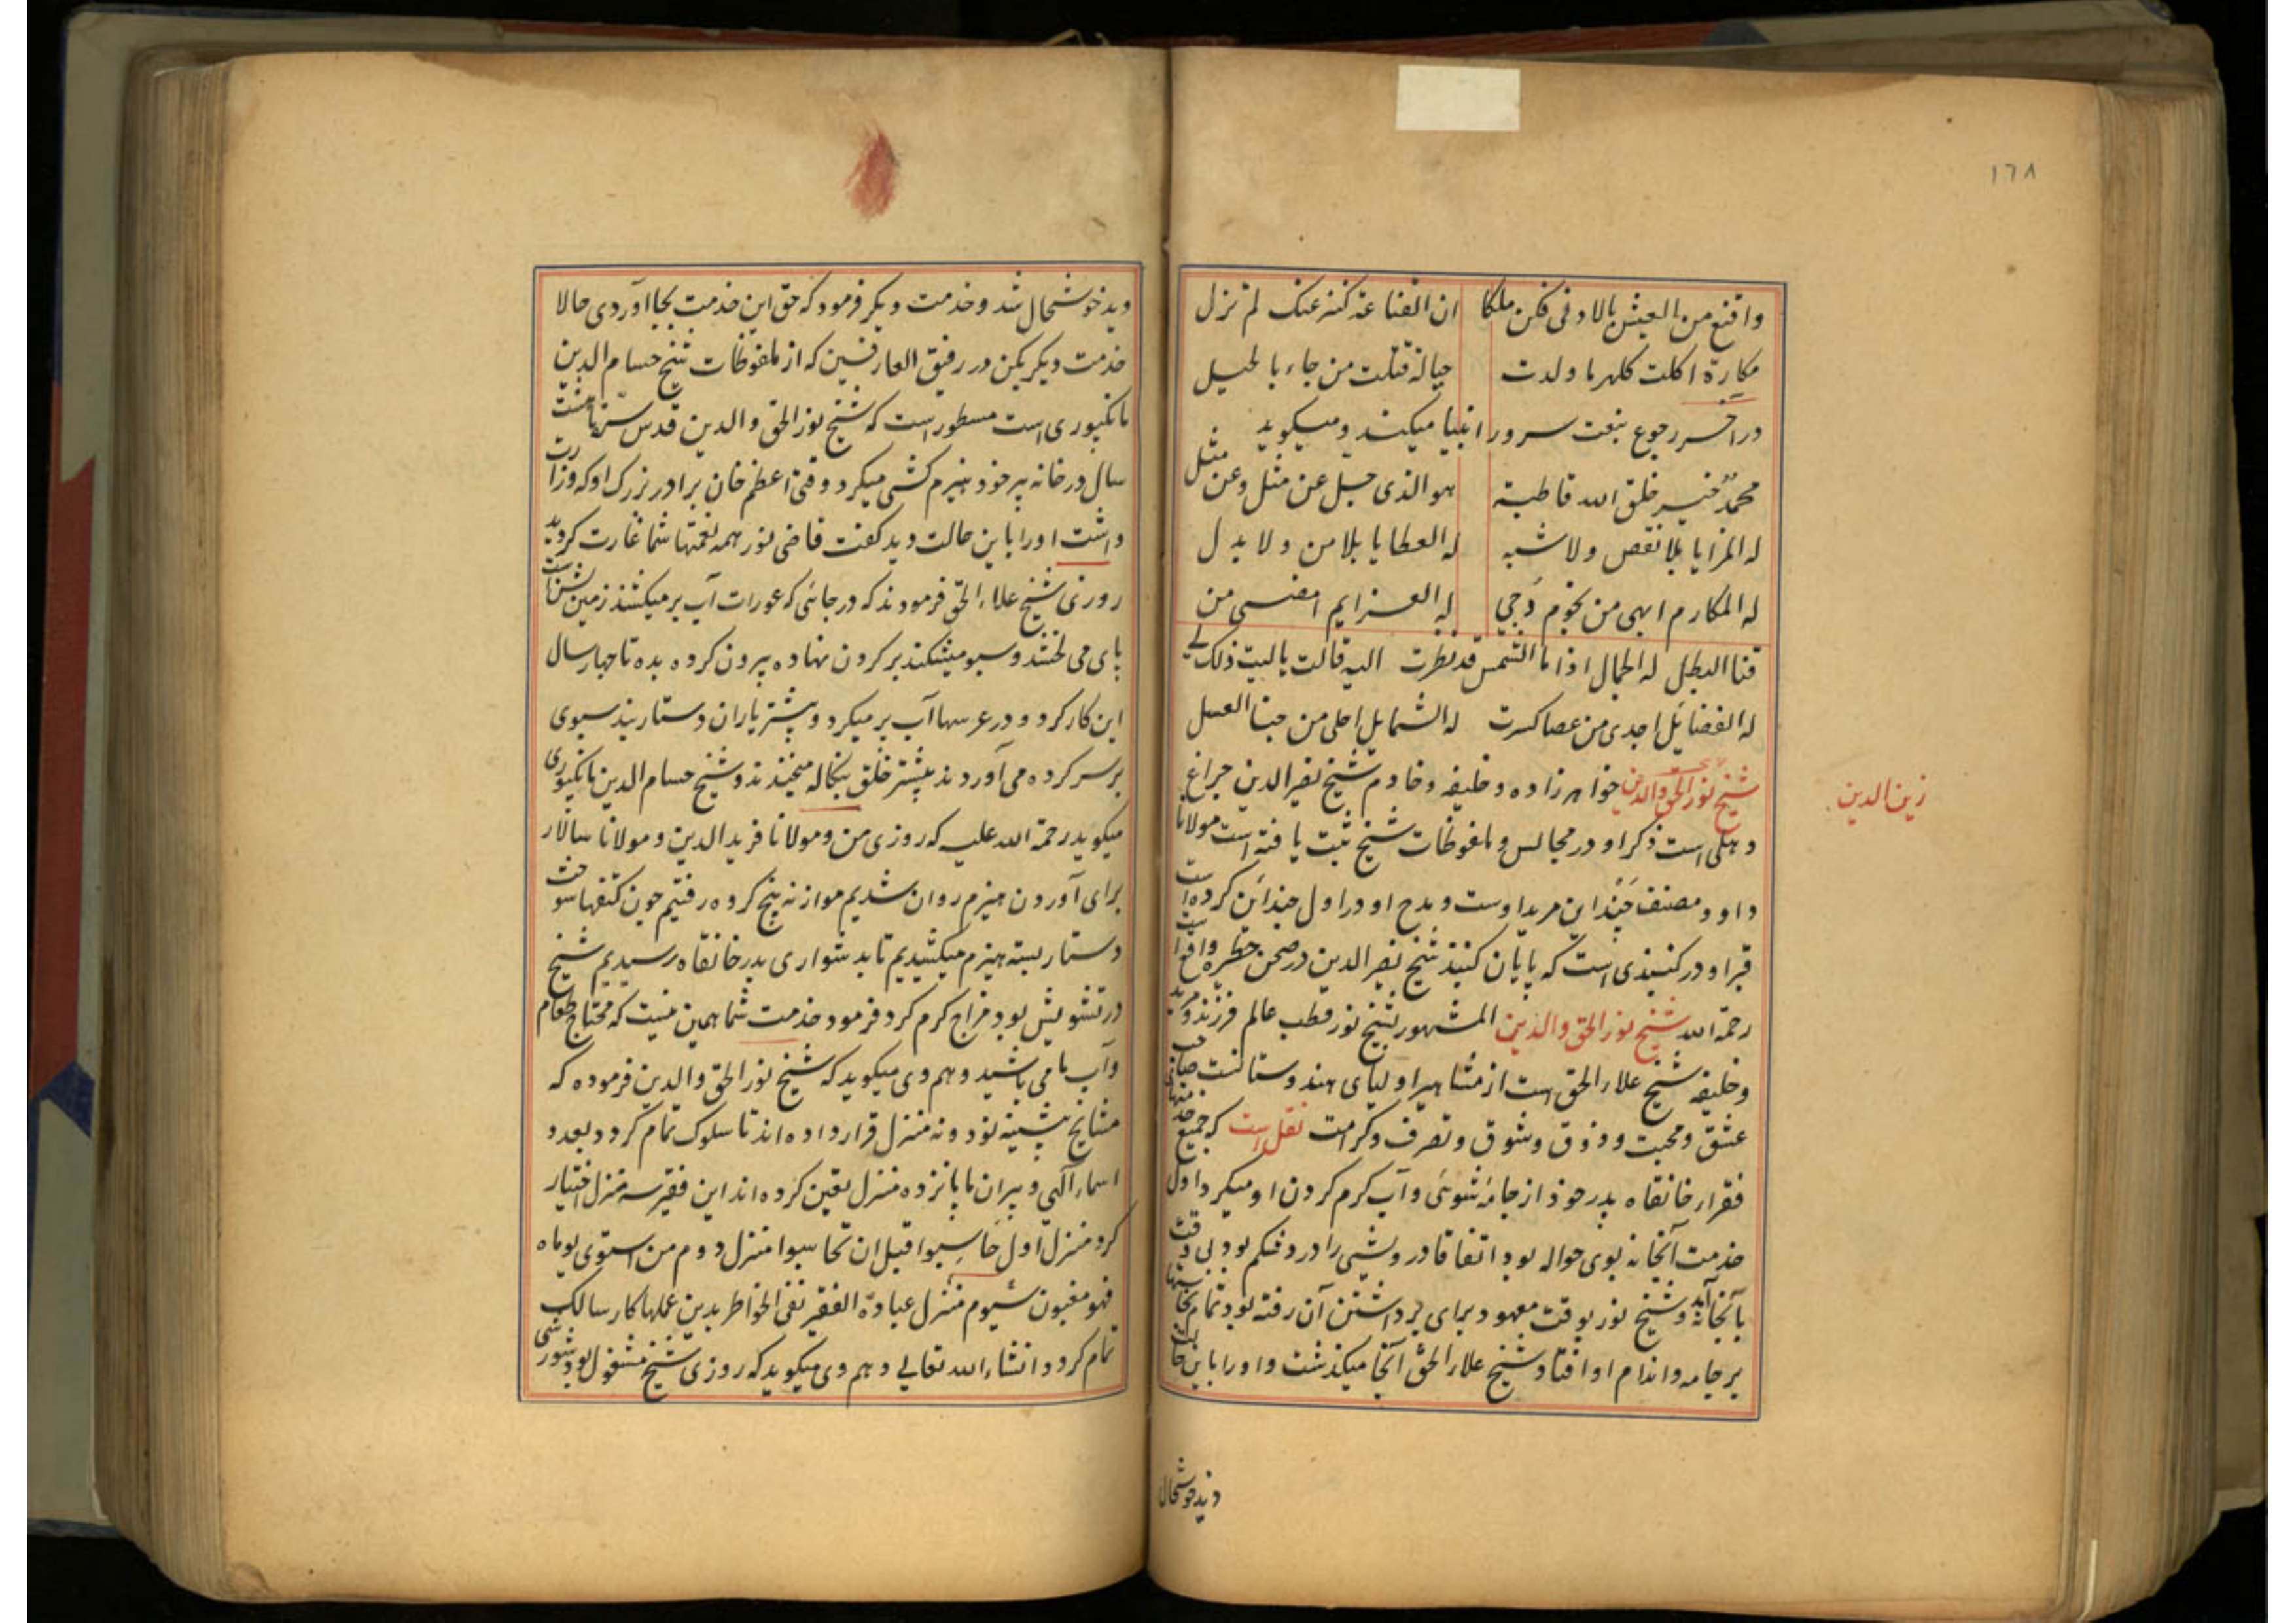 ١٦٨
واقنع من العیش بالادنی فکن ملکا ان الغنا عنه کنز عنک لم تزل
مکارة اکلت کلهر ما ولدت حیالة قتلت من جاء بالحیل
در اخر رجوع بنعت سرور انبیا میکند و میکوید
محمد خیر خلق الله قاطبة هو الذی جل عن مثل وعن مثل
له المزایا بلا نقص ولا شبه له العطایا بلا من ولا بدل
له المکارم ابهی من نجوم دجی له العزایم امضی من
قنا البطل له الجمال اذا ما الشمس قد نظرت الیه قالت یا لیت ذلک لی
له الفضائل اجدی من عصا کسرت له الشمایل احلی من جنا العسل
شیخ نور الحق والدین خواهرزاده و خلیفه و خادم شیخ نصیر الدین چراغ
زین الدین
دهلی است ذکر او در مجالس و ملفوظات شیخ ثبت یافته است مولانا
داود مصنف چنداین مرید اوست و مدح او در اول چنداین کرده است
قبر او در کنبدی است که پایان کنبد شیخ نصیر الدین در صحن حظیره واقع است
رحمة الله شیخ نور الحق والدین المشهور بشیخ نور قطب عالم فرزند و مرید
و خلیفه شیخ علاء الحق است از مشاهیر اولیای هندوستانست صاحب
عشق و محبت و ذوق و شوق و تصرف و کرامت نقل است که جمیع خدمتهای
فقراء خانقاه پدر خود از جامه شوئی و آب کرم کردن او میکرد اول
خدمت آنخانه بوی حواله بود اتفاقا درویشی را درد شکم بود بی وقت
بآنخانه آید و شیخ نور بوقت معهود برای برداشتن آن رفته بود تمام
بر جامه و اندام او افتاد شیخ علاء الحق آنجا میکذشت و او را باین حالت
دید خوشحال
دید خوشحال شد و خدمت دیکر فرمود که حق این خدمت بجا آوردی حالا
خدمت دیکر بکن در رفیق العارفین که از ملفوظات شیخ حسام الدین
مانکپوری است مسطور است که شیخ نور الحق والدین قدس سره تا هشت
سال در خانه پیر خود هیزم کشی میکرد وقتی اعظم خان برادر بزرک او که وزارت
داشت او را باین حالت دید کفت قاضی نور همه نعمتها شما غارت کردید
روزی شیخ علاء الحق فرمودند که در جائی که عورات آب بر میکشند زمین
پای می لخشند و سبو میشکند بر کردن نهاده بیرون کرده بده تا چهار سال
این کار کرد و در عرسها آب بر میکرد و بیشتر یاران دستار بند سبوی
بر سر کرده می آوردند بیشتر خلق بنکاله میخندند و شیخ حسام الدین مانکپوری
میکوید رحمة الله علیه که روزی من و مولانا فرید الدین و مولانا سالار
برای آوردن هیزم روان شدیم موازنه پنج کروه رفتیم چون کتفها سوخت
دستار بسته هیزم میکشیدیم تا بدشواری بدر خانقاه رسیدیم شیخ
در تشویش بود مزاج کرم کرد فرمود خدمت شما همین نیست که محتاج طعام
و آب ما می باشید و هم وی میکوید که شیخ نور الحق والدین فرموده که
مشایخ پیشینه نود و نه منزل قرار داده اند تا سلوک تمام کردد بعدد
اسماء الهی و پیران ما پانزده منزل تعین کرده اند این فقیر سه منزل اختیار
کرد منزل اول حاسبوا قبل ان تحاسبوا منزل دوم من استوی یوماه
فهو مغبون سیوم منزل عبادة الفقیر نفی الخواطر بدین عملها کار سالک
تمام کردد انشاء الله تعالی و هم وی میکوید که روزی شیخ مشغول بود